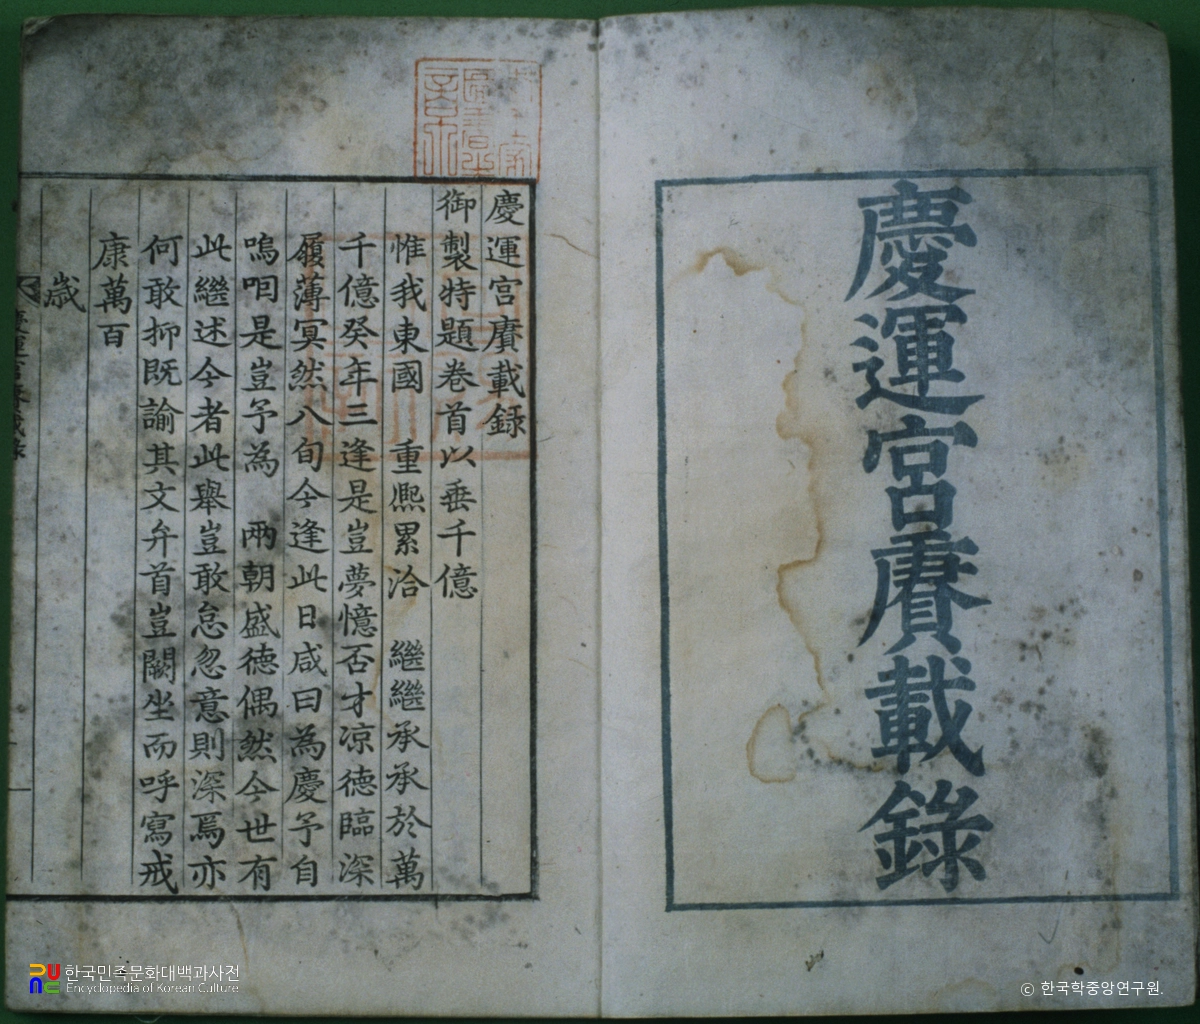 慶運宮賡載錄
慶運宮賡載錄
御製特題卷首以垂千億
惟我東國 重熙累洽 繼繼承承於萬
千億癸年三逢是豈夢憶否才凉德臨深
履薄冥然八旬今逢此日咸曰為慶予自
嗚咽是豈予為 兩朝盛德偶然今世有
此繼述今者此舉豈敢怠忽意則深焉亦
何敢抑旣諭其文弁首豈闕坐而呼寫戒
康萬百
歲
慶運宮賡載錄
한국민족문화대백과사전
Encyclopedia of Korean Culture
© 한국학중앙연구원.